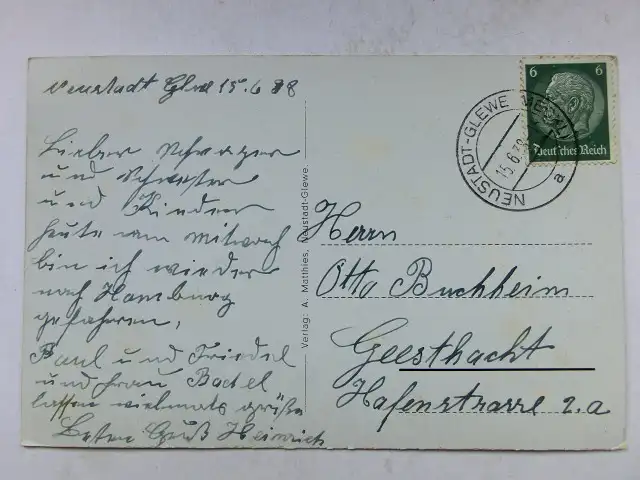 Neustadt Glewe 15.6 38
Lieber Schwager
und Schwester
und Kinder
heute am Mitwoch
bin ich wieder
nach Hamburg
gefahren,
Paul und Friedel
und Frau Backel
lassen vielmals grüße
Besten Gruß Heinrich
Verlag: A. Matthies, Neustadt-Glewe.
6 6
Deutsches Reich
NEUSTADT-GLEWE
15.6.38
a
Herrn
Otto Buchheim
Geesthacht
Hafenstrasse 2.a